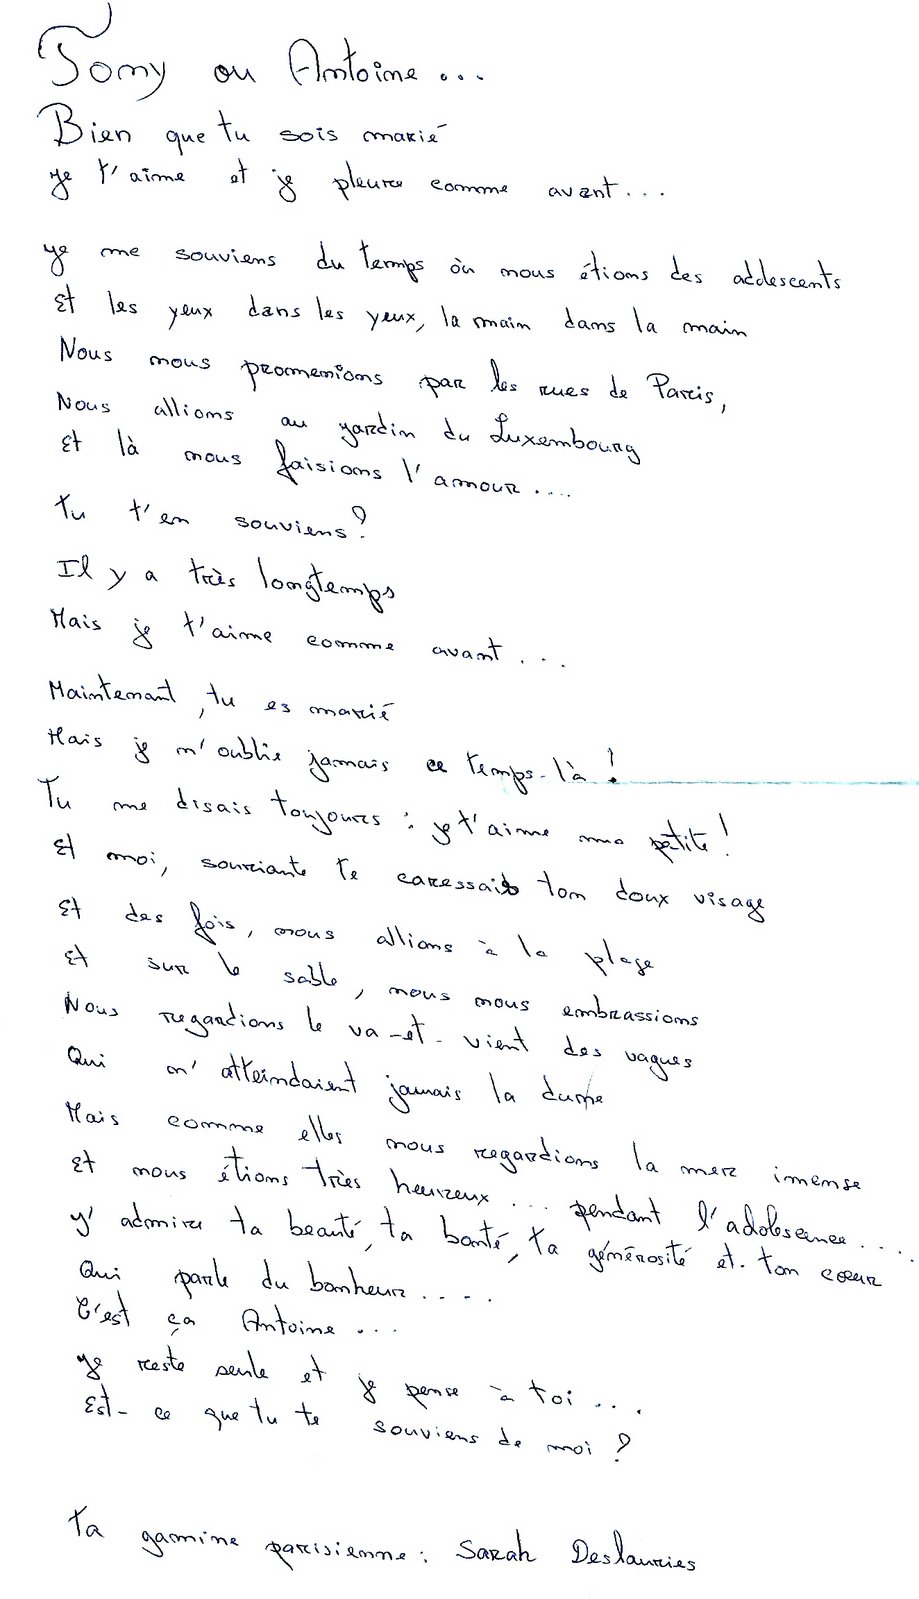 Tomy ou Antoine...
Bien que tu sois marié
je t'aime et je pleure comme avant...
je me souviens du temps où nous étions des addescents
Et les yeux dans les yeux, la main dans la main
Nous nous promenions par les rues de Paris,
Nous allions au jardin du Luxembourg
Et là nous faisions l'amour....
Tu t'en souviens?
Il y a très longtemps
Mais je t'aime comme avant...
Maintenant, tu es marié
Mais je n'oublie jamais ce temps-là!
Tu me disais toujours: je t'aime ma petite!
Et moi, souriante te caressais ton doux visage
Et des fois, nous allions à la plage
Et sur le sable, nous nous embrassions
Nous regardions le va-et-vient des vagues
Qui n'atteindaient jamais la dume
Mais comme elles nous regardions la mer imense
Et nous étions très heureux... pendant l'adolescence....
J'admire ta beauté, ta bonté, ta générosité et ton coeur
Qui parle du bonheur....
C'est ça Antoine...
Je reste seule et je pense à toi...
Est-ce que tu te souviens de moi?
Ta gamine parisienne: Sarah Deslauries